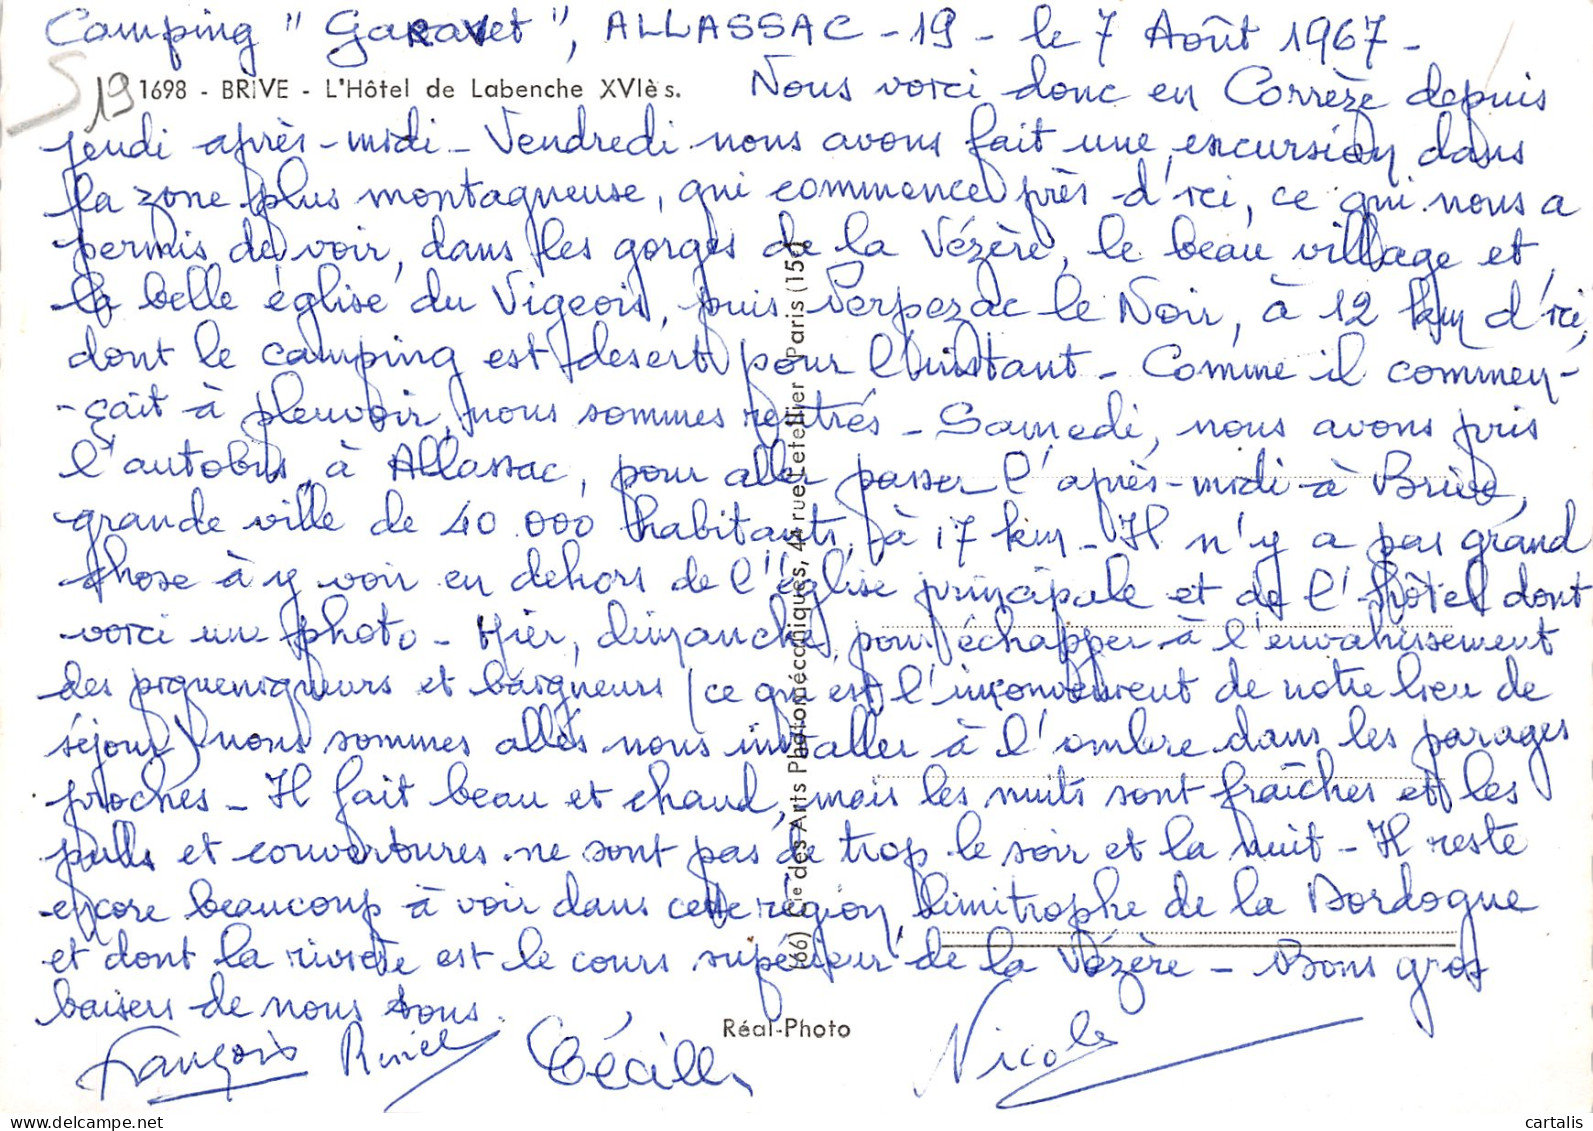 Camping "Garavet", ALLASSAC - 19 - le 7 Août 1967 -
19 1698 - BRIVE - L'Hôtel de Labenche XVIè s.
Nous voici donc en Corrèze depuis
jeudi après-midi - Vendredi nous avons fait une excursion dans
la zone plus montagneuse, qui commence près d'ici, ce qui nous a
permis de voir, dans les gorges de la Vézère, le beau village et
la belle église du Vigeois, puis Perpezac le Noir, à 12 km d'ici,
dont le camping est désert pour l'instant - Comme il commen-
-çait à pleuvoir, nous sommes rentrés - Samedi, nous avons pris
l'autobus, à Allassac, pour aller passer l'après-midi à Brive,
grande ville de 40 000 habitants, à 17 km - Il n'y a pas grand
chose à y voir en dehors de l'église principale et de l'hôtel dont
voici une photo - Hier, dimanche, pour échapper à l'envahissement
des piqueniqueurs et baigneurs (ce qui est l'inconvénient de notre lieu de
séjour) nous sommes allés nous installer à l'ombre dans les parages
proches - Il fait beau et chaud, mais les nuits sont fraîches et les
pulls et couvertures ne sont pas de trop le soir et la nuit - Il reste
encore beaucoup à voir dans cette région, limitrophe de la Dordogne
et dont la rivière est le cours supérieur de la Vézère - Bons gros
baisers de nous tous.
François Cécille Nicole
Réal-Photo
(66) Cie des Arts Photomécaniques, 44 rue Letellier Paris (15e)
cartalis
www.delcampe.net